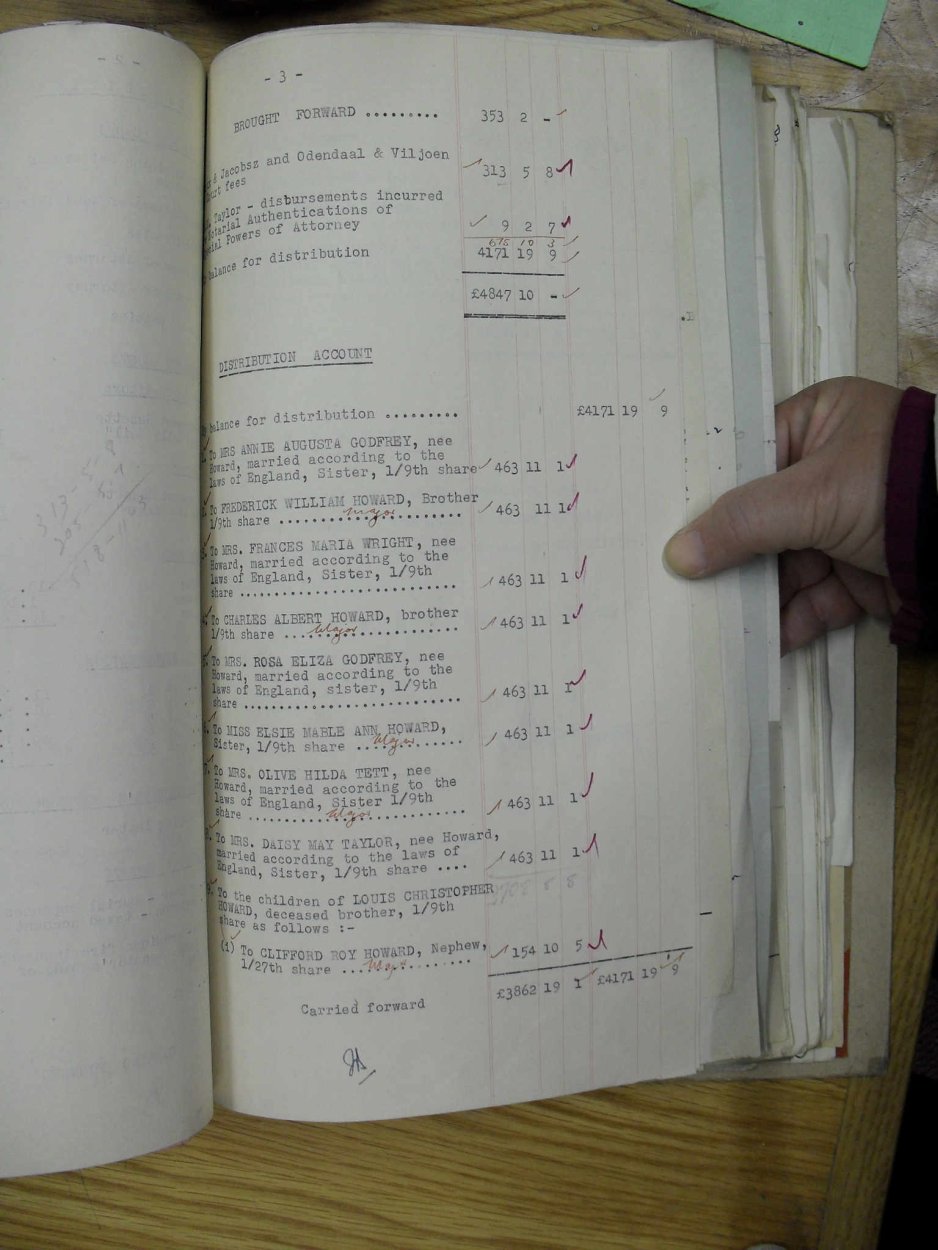 - 3 -
BROUGHT FORWARD ......... 353 2 -
& Jacobsz and Odendaal & Viljoen
fees 313 5 8
Taylor - disbursements incurred
Authentications of
Powers of Attorney 9 2 7
675 10 3
balance for distribution 4171 19 9
£4847 10 -
DISTRIBUTION ACCOUNT
balance for distribution ......... £4171 19 9
To MRS ANNIE AUGUSTA GODFREY, nee
Howard, married according to the
laws of England, Sister, 1/9th share 463 11 1
To FREDERICK WILLIAM HOWARD, Brother
1/9th share ...major... 463 11 1
To MRS. FRANCES MARIA WRIGHT, nee
Howard, married according to the
laws of England, Sister, 1/9th
share ............................ 463 11 1
To CHARLES ALBERT HOWARD, brother
1/9th share ...Major... 463 11 1
To MRS. ROSA ELIZA GODFREY, nee
Howard, married according to the
laws of England, sister, 1/9th
share ............................ 463 11 1
To MISS ELSIE MABLE ANN HOWARD,
Sister, 1/9th share ...Major... 463 11 1
7. To MRS. OLIVE HILDA TETT, nee
Howard, married according to the
laws of England, Sister 1/9th
share ...Major... 463 11 1
To MRS. DAISY MAY TAYLOR, nee Howard,
married according to the laws of
England, Sister, 1/9th share .... 463 11 1
3708 8 8
9. To the children of LOUIS CHRISTOPHER
HOWARD, deceased brother, 1/9th
share as follows :-
(i) To CLIFFORD ROY HOWARD, Nephew,
1/27th share ...Major... 154 10 5
Carried forward £3862 19 1 £4171 19 9